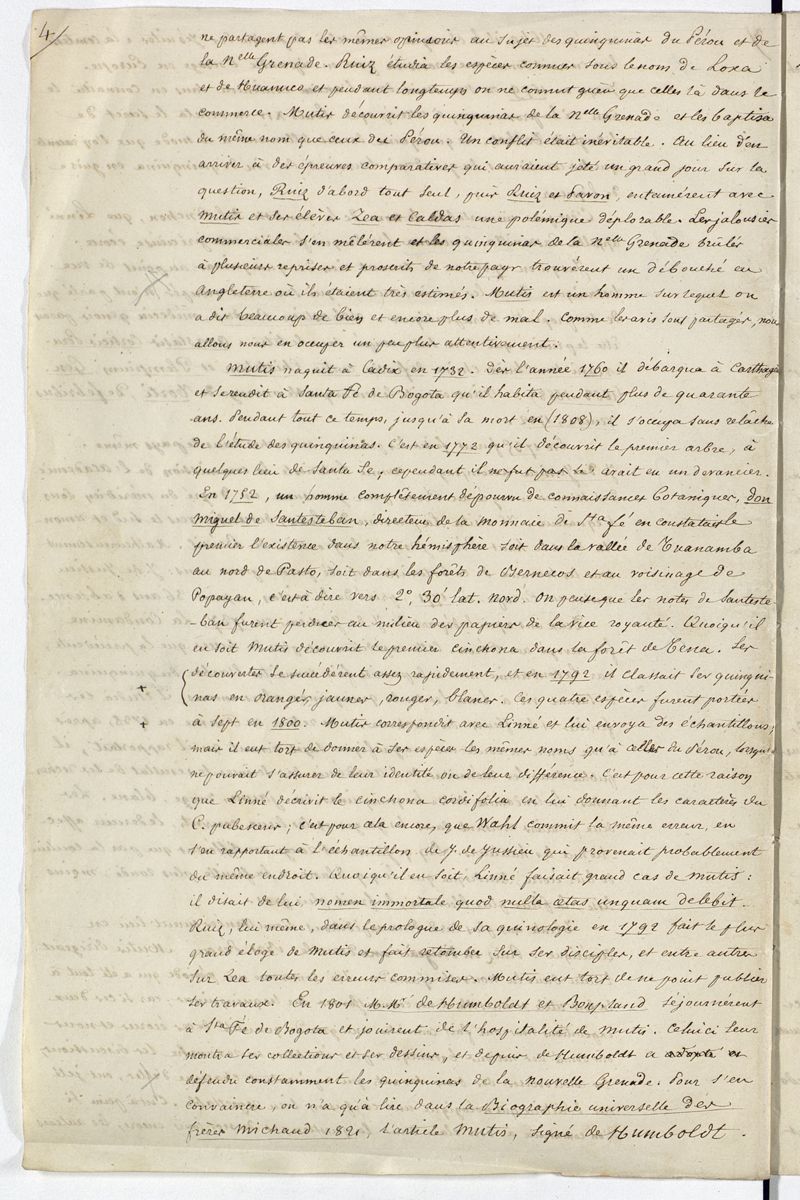 4/
ne partagent pas les mêmes opinions au sujet des quinquinas du Pérou et de
la Nelle Grenade. Ruiz étudia les espèces connues sous le nom de Loxa
et de Huanuco et pendant longtemps on ne connut guère que celles là dans le
commerce. Mutis découvrit les quinquinas de la Nelle Grenade et les baptisa
du même nom que ceux du Pérou. Un conflit était inévitable. Au lieu d'en
arriver à des épreuves comparatives qui auraient jeté un grand jour sur la
question, Ruiz d'abord tout seul, puis Ruiz et Pavon, entamèrent avec
Mutis et ses élèves Zea et Caldas une polémique déplorable. Les jalousies
commerciales s'en mêlèrent et les quinquinas de la Nelle Grenade brûlés
à plusieurs reprises et proscrits de notre pays trouvèrent un débouché en
Angleterre où ils étaient très estimés. Mutis est un homme sur lequel on
a dit beaucoup de bien et encore plus de mal. Comme les avis sont partagés, nous
allons nous en occuper un peu plus attentivement.
Mutis naquit à Cadix en 1732. Dès l'année 1760 il débarqua à Carthagè
et se rendit à Santa Fé de Bogota qu'il habita pendant plus de quarante
ans. Pendant tout ce temps, jusqu'à sa mort en (1808), il s'occupa sans relâche
de l'étude des quinquinas. C'est en 1772 qu'il découvrit le premier arbre, à
quelques lieues de Santa Fe, cependant il avait eu un devancier.
En 1752, un homme complètement dépourvu de connaissances botaniques, don
Miguel de Santesteban, directeur de la monnaie de Sta fé en constatait le
premier l'existence dans notre hémisphère soit dans la vallée de Tuanamba
au nord de Pasto, soit dans les forêts de Berrecos et au voisinage de
Popayan, c'est à dire vers 2°, 30' lat. Nord. On pense que les notes de Santeste-
-ban furent perdues au milieu des papiers de la vice royauté. Quoiqu'il
en soit Mutis découvrit le premier cinchona dans la forêt de Tena. Ses
découvertes se succédèrent assez rapidement, et en 1792 il classait ses quinqui-
nas en orangés, jaunes, rouges, blancs. Ces quatre espèces furent portées
à sept en 1800. Mutis correspondit avec Linné et lui envoya des échantillons;
mais il eut tort de donner à ses espèces les mêmes noms qu'à celles du Pérou, lorsqu'il
ne pouvait s'assurer de leur identité ou de leur différence. C'est pour cette raison
que Linné décrivit le cinchona cordifolia en lui donnant les caractères du
C. pubescens; c'est pour cela encore, que Wahl commit la même erreur, en
s'en rapportant à l'échantillon de J. de Jussieu qui provenait probablement
du même endroit. Quoiqu'il en soit, Linné faisait grand cas de Mutis:
il disait de lui, nomen immortale quod nulla ætas unquam delebit.
Ruiz, lui même, dans le prologue de sa quinologie en 1792 fait le plus
grand éloge de Mutis et fait retomber sur ses disciples, et entre autres
sur Zea toutes les erreurs commises. Mutis eut tort de ne point publier
ses travaux. En 1801 M.Mrs de Humboldt et Bonpland séjournèrent
à Sta Fé de Bogota et jouirent de l'hospitalité de Mutis. Celui ci leur
montra ses collections et ses dessins, et depuis de Humboldt a adopté et
défendu constamment les quinquinas de la nouvelle Grenade. Pour s'en
convaincre, on n'a qu'à lire, dans la Biographie universelle des
frères Michaud 1821, l'article Mutis, signé de Humboldt.